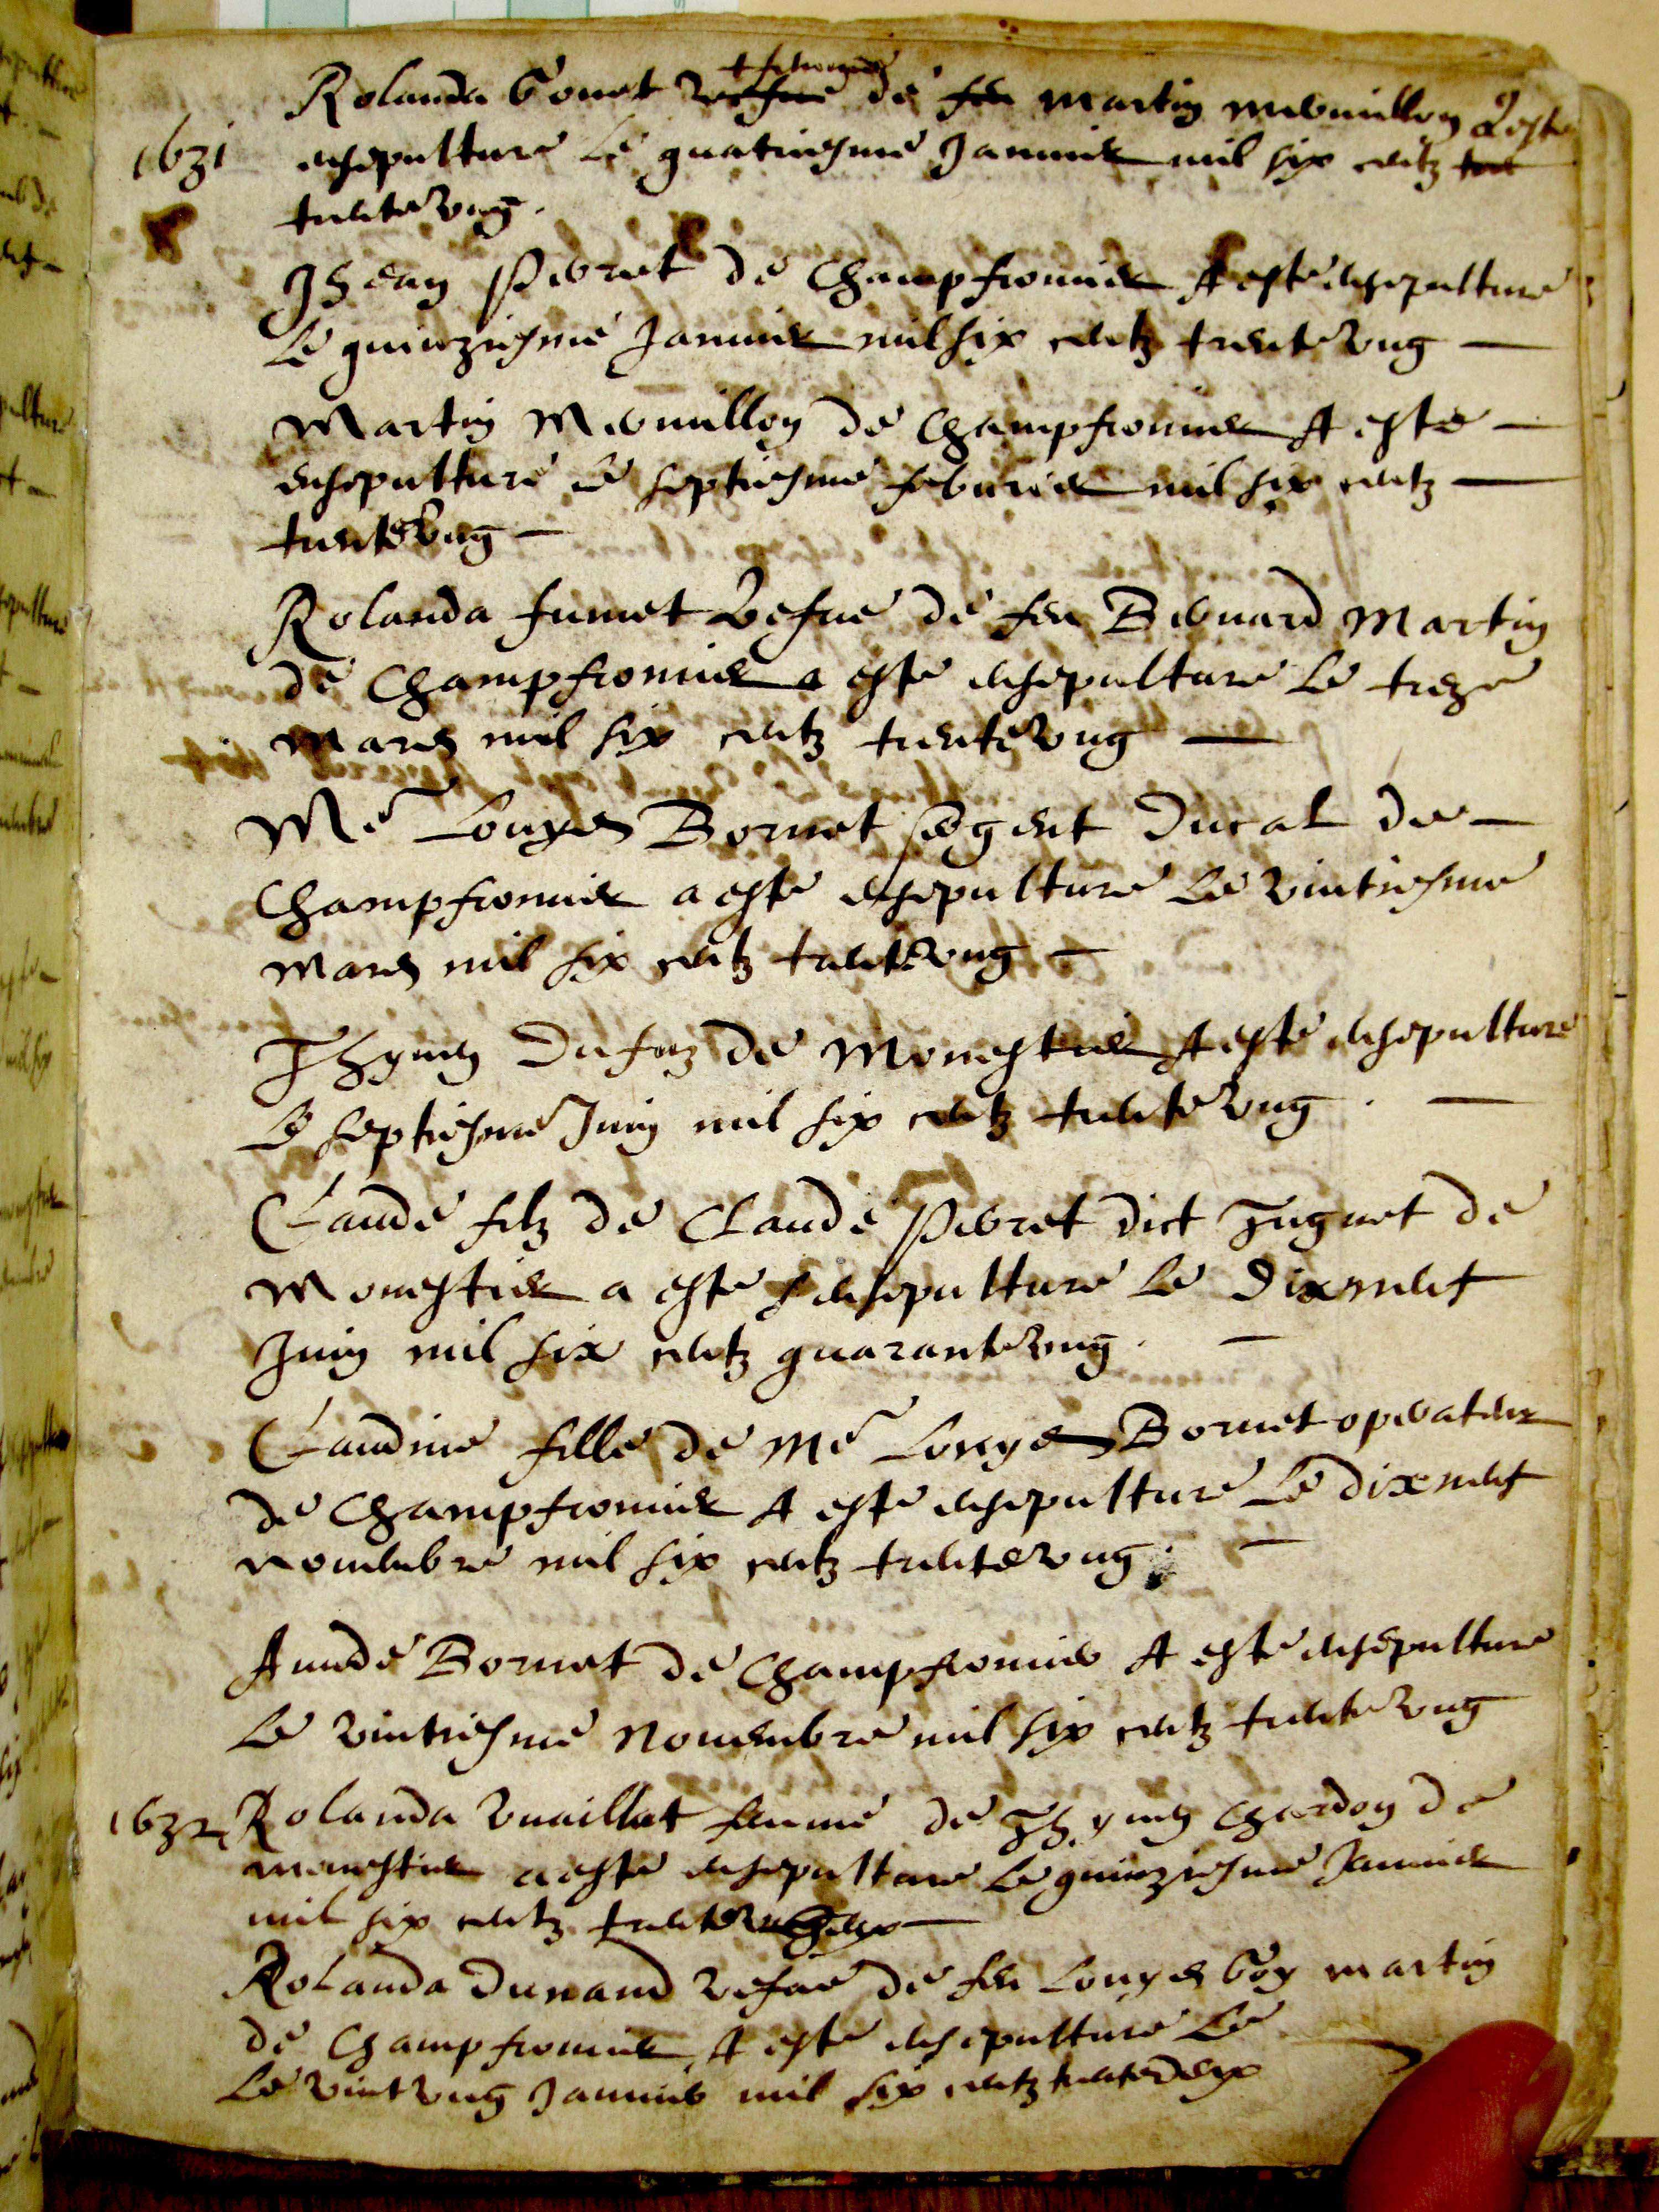 Rolanda Gonet vefue de feu Martin Mermillon a este
1631 ensepulturé le quatriesme Januier mil six centz
trente vng.
Jhean Perret de Champfromier A esté ensepulturé
Le quinziesme Januier mil six centz trente vng
Martin Mermillon de Champfromier A esté
ensepulturé le septiesme feburier mil six centz
trente vng
Rolanda fumet vefue de feu Bernard Martin
de Champfromier a esté ensepulturé le treze
Mars mil six centz trente vng
Me Louys Bornet segent Ducal de
Champfromier a esté ensepulturé le vintiesme
Mars mil six centz trente vng
Thyuen Ducfuz de Monestier A esté ensepulturé
Le septiesme Juin mil six centz trente vng.
Claude filz de Claude Perret dict Tugnet de
Monestier a esté ensepulturé le Dixneuf
Juin mil six centz quarante vng.
Claudine fille de Me Louys Bornet operateur
de Champfromier A esté ensepulturé Le dixneuf
Nouembre mil six centz trente vng.
Aimde Bornet de Champfromier A esté ensepulturé
Le vintiesme Nouembre mil six centz trente vng
1632 Rolanda Vuaillat femme de Thyuen Chardon de
Monestier a esté ensepulturé Le quinziesme Januier
mil six centz trente
Rolanda Dunand vefue de feu Louys Goy Martin
de Champfromier A esté ensepulturé Le
Le vint vng Januier mil six centz trente deux